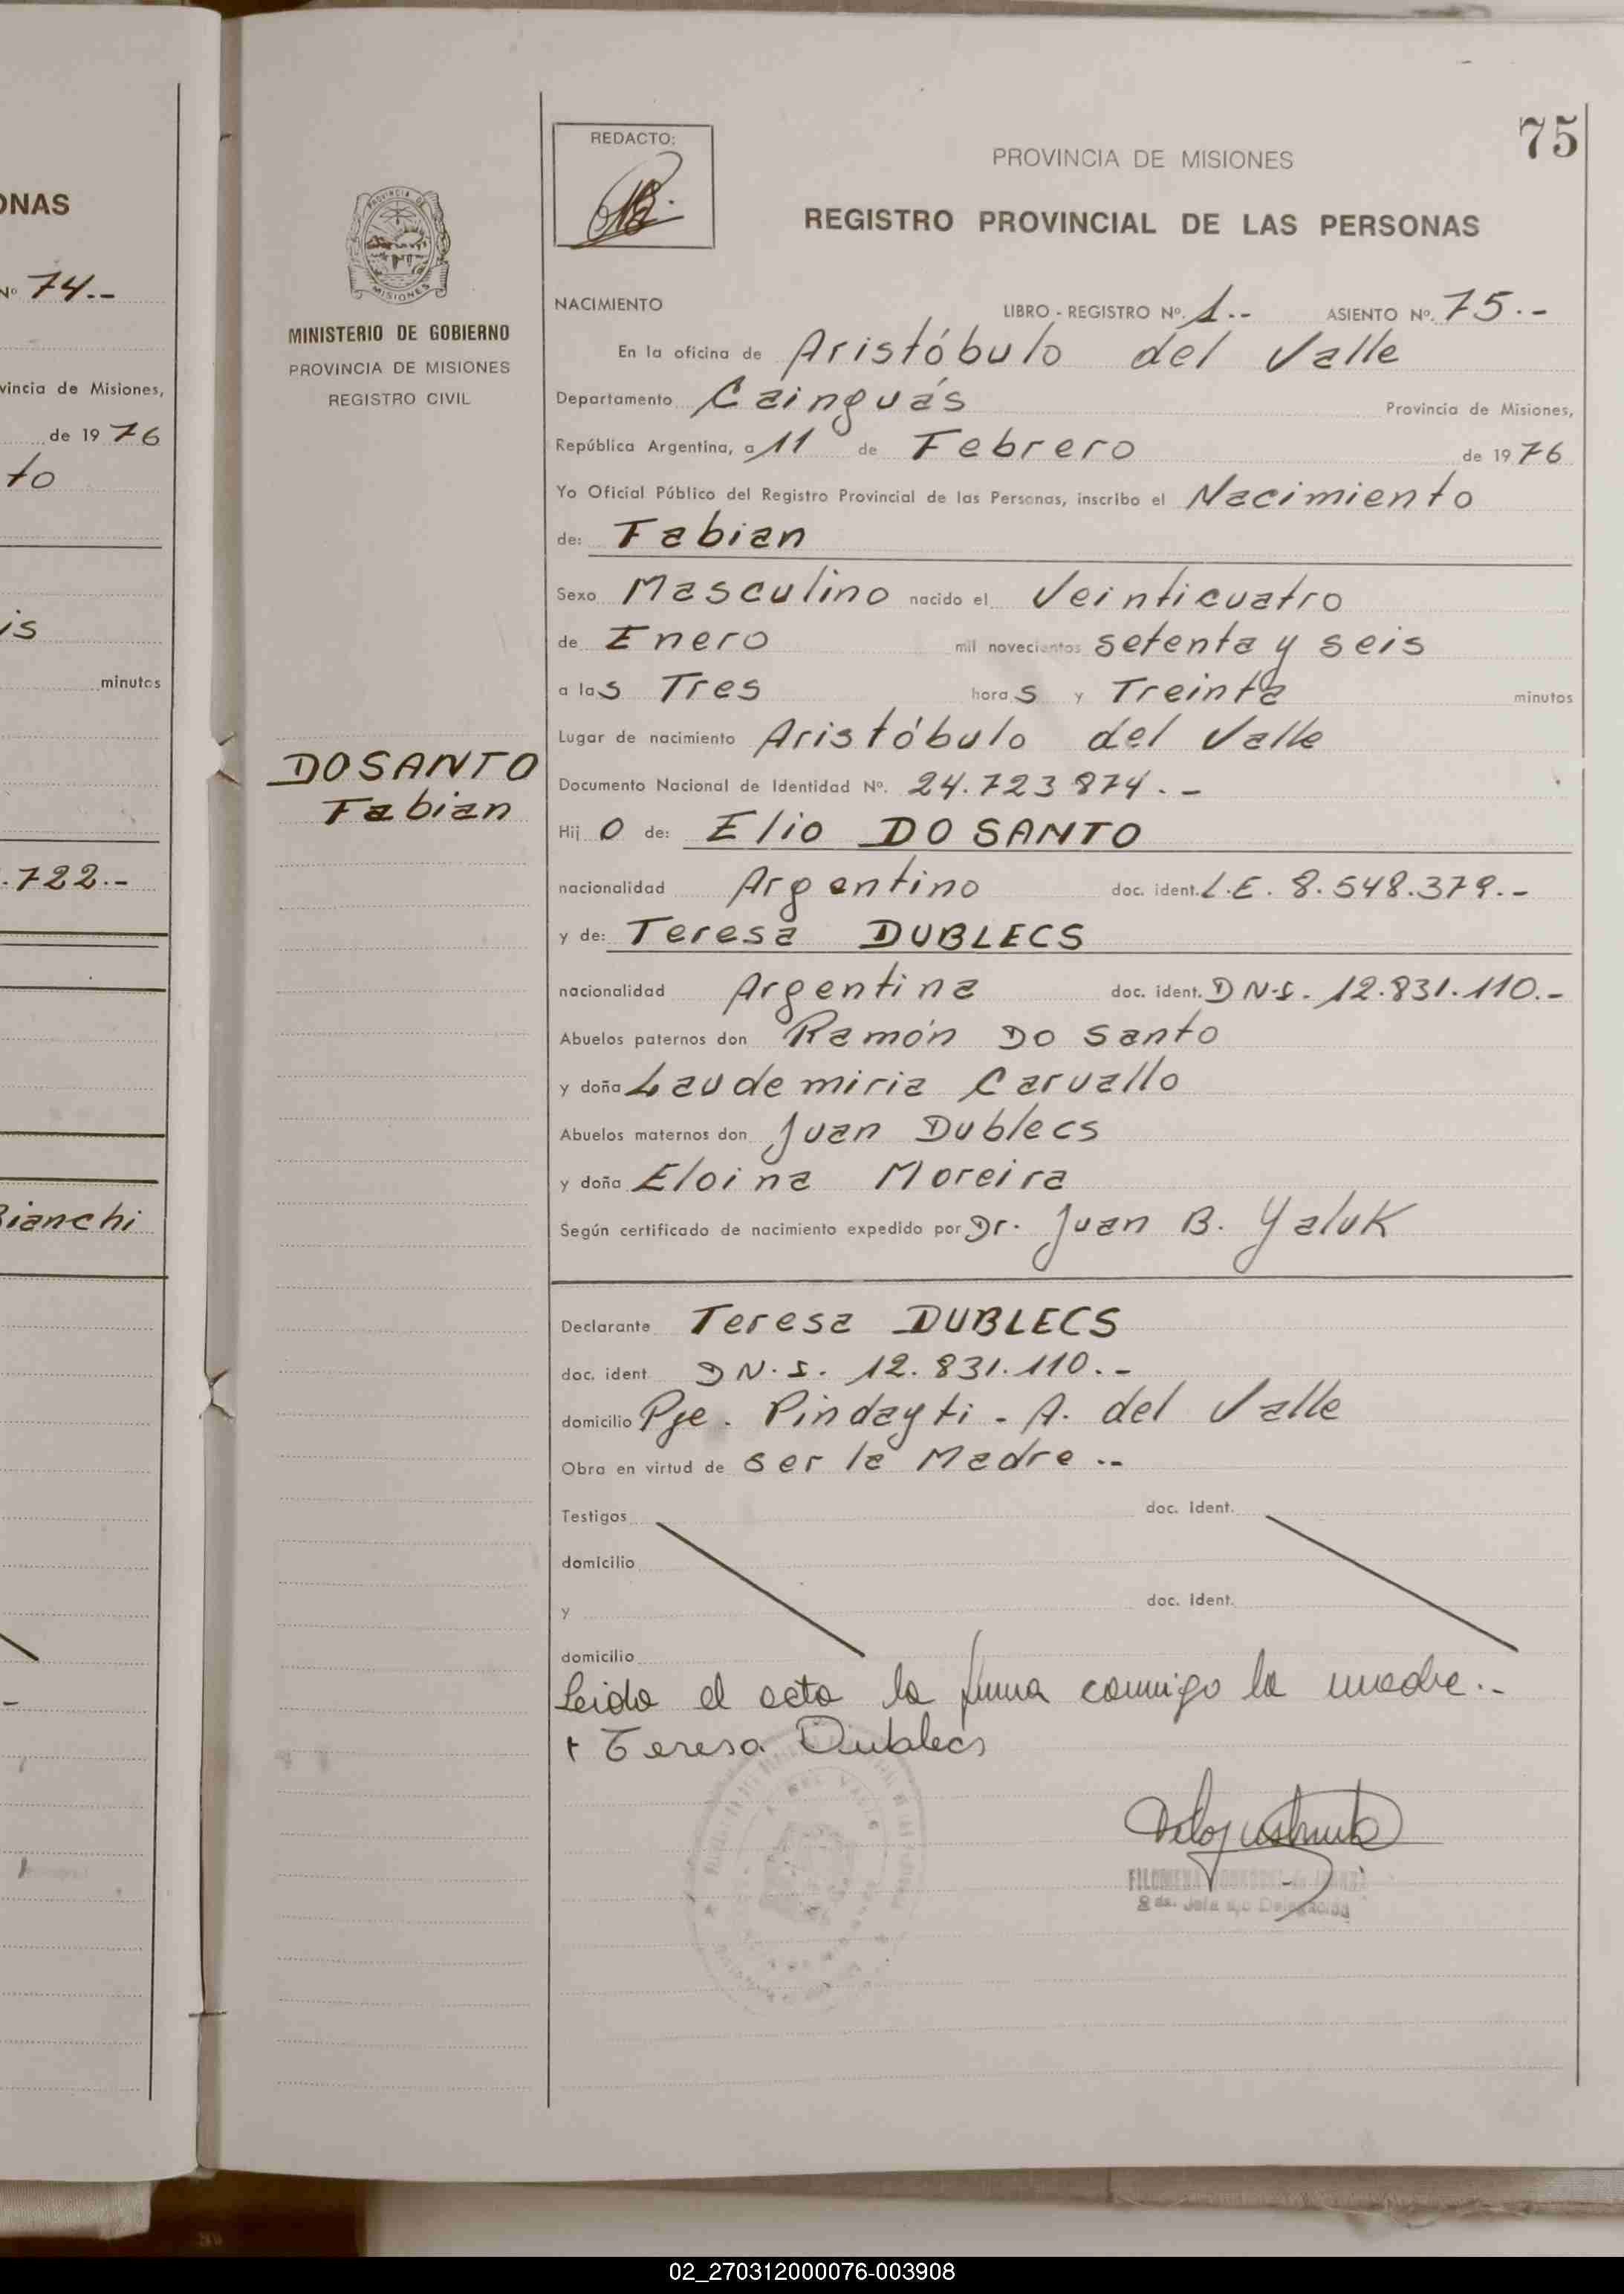 ONAS
Nº 74.--
vincia de Misiones,
de 19 76
to
is
minutos
.722.-
Bianchi
PROVINCIA DE
MISIONES
MINISTERIO DE GOBIERNO
PROVINCIA DE MISIONES
REGISTRO CIVIL
DO SANTO
Fabian
REDACTO:
75
PROVINCIA DE MISIONES
REGISTRO PROVINCIAL DE LAS PERSONAS
NACIMIENTO LIBRO - REGISTRO Nº. 1.-- ASIENTO Nº. 75.--
En la oficina de Aristóbulo del Valle
Departamento Cainguás Provincia de Misiones,
República Argentina, a 11 de Febrero de 19 76
Yo Oficial Público del Registro Provincial de las Personas, inscribo el Nacimiento
de: Fabian
Sexo Masculino nacido el Veinticuatro
de Enero mil novecientos setenta y seis
a las Tres horas y Treinta minutos
Lugar de nacimiento Aristóbulo del Valle
Documento Nacional de Identidad Nº. 24.723874.--
Hijo de: Elio DO SANTO
nacionalidad Argentino doc. ident. L.E. 8.548.379.--
y de: Teresa DUBLECS
nacionalidad Argentina doc. ident. DN.I. 12.831.110.--
Abuelos paternos don Ramón Do Santo
y doña Laudemiria Carvallo
Abuelos maternos don Juan Dublecs
y doña Eloina Moreira
Según certificado de nacimiento expedido por Dr. Juan B. Yaluk
Declarante Teresa DUBLECS
doc. ident DN.I. 12.831.110.--
domicilio Pje. Pindayti - A. del Valle
Obra en virtud de ser la Madre.--
Testigos doc. Ident.
domicilio
y doc. Ident.
domicilio
Leido el acta la firma conmigo la madre.--
+ Teresa Dublecs
FILOMENA
2da. Jefa a/c Delegación
02_270312000076-003908